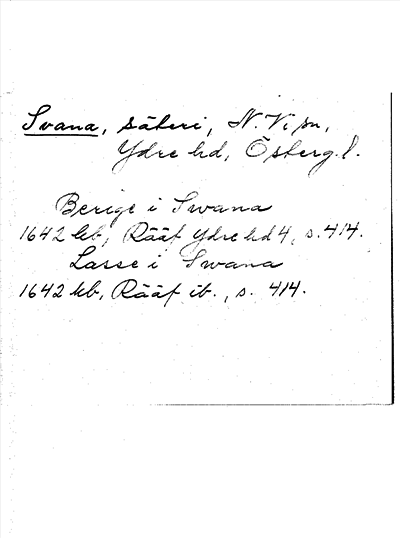 Svana, säteri, N. Vi sn,
Ydre hd, Österg. l.
Berige i Swana
1642 kb, Rääf Ydre hd 4, s. 414.
Lasse i Swana
1642 kb, Rääf ib., s. 414.